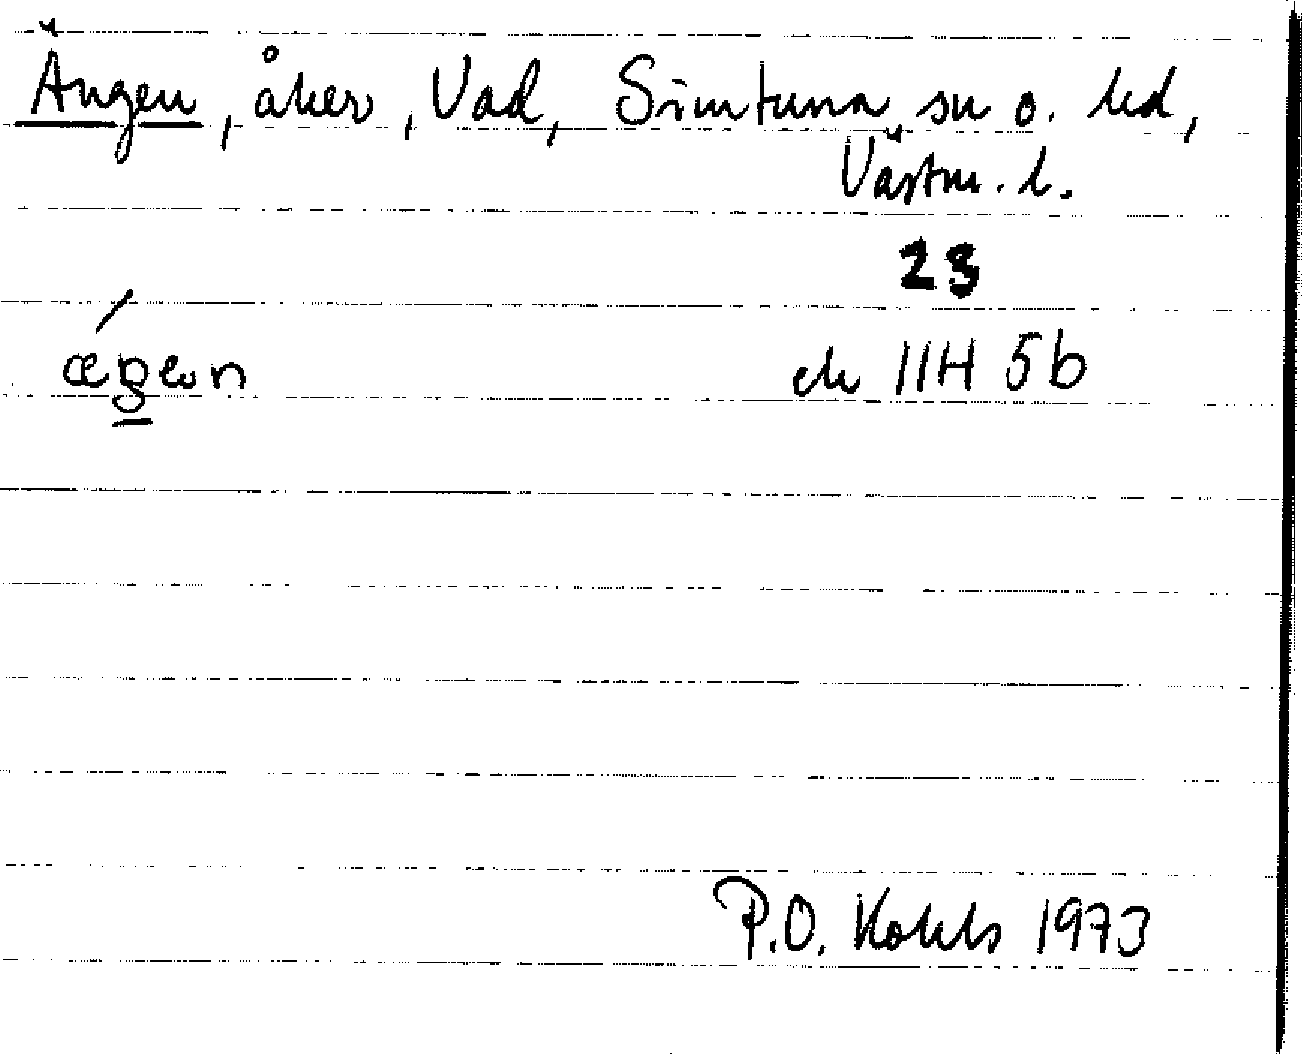 Ängen, åker, Vad, Simtuna sn o. hd,
Västm. l.
23
ek 11H 5b
P.O. Kohls 1973